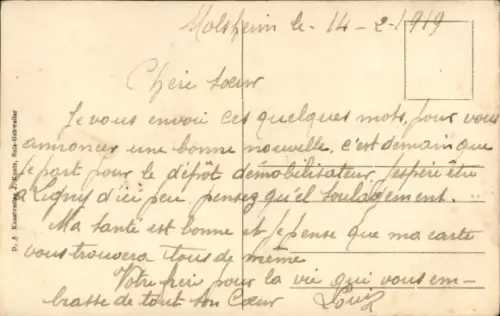 Molsheim le 14-2-1919
Chère soeur
Je vous envoi ces quelques mots, pour vous
annoncer une bonne nouvelle, c'est demain que
je part pour le dépôt démobilisateur, j'espère être
à Ligny d'ici peu, pensez qu'el soulagement.
Ma santé est bonne et je pense que ma carte
vous trouvera tous de même
Votre frère pour la vie qui vous em-
brasse de tout son Coeur
Louis